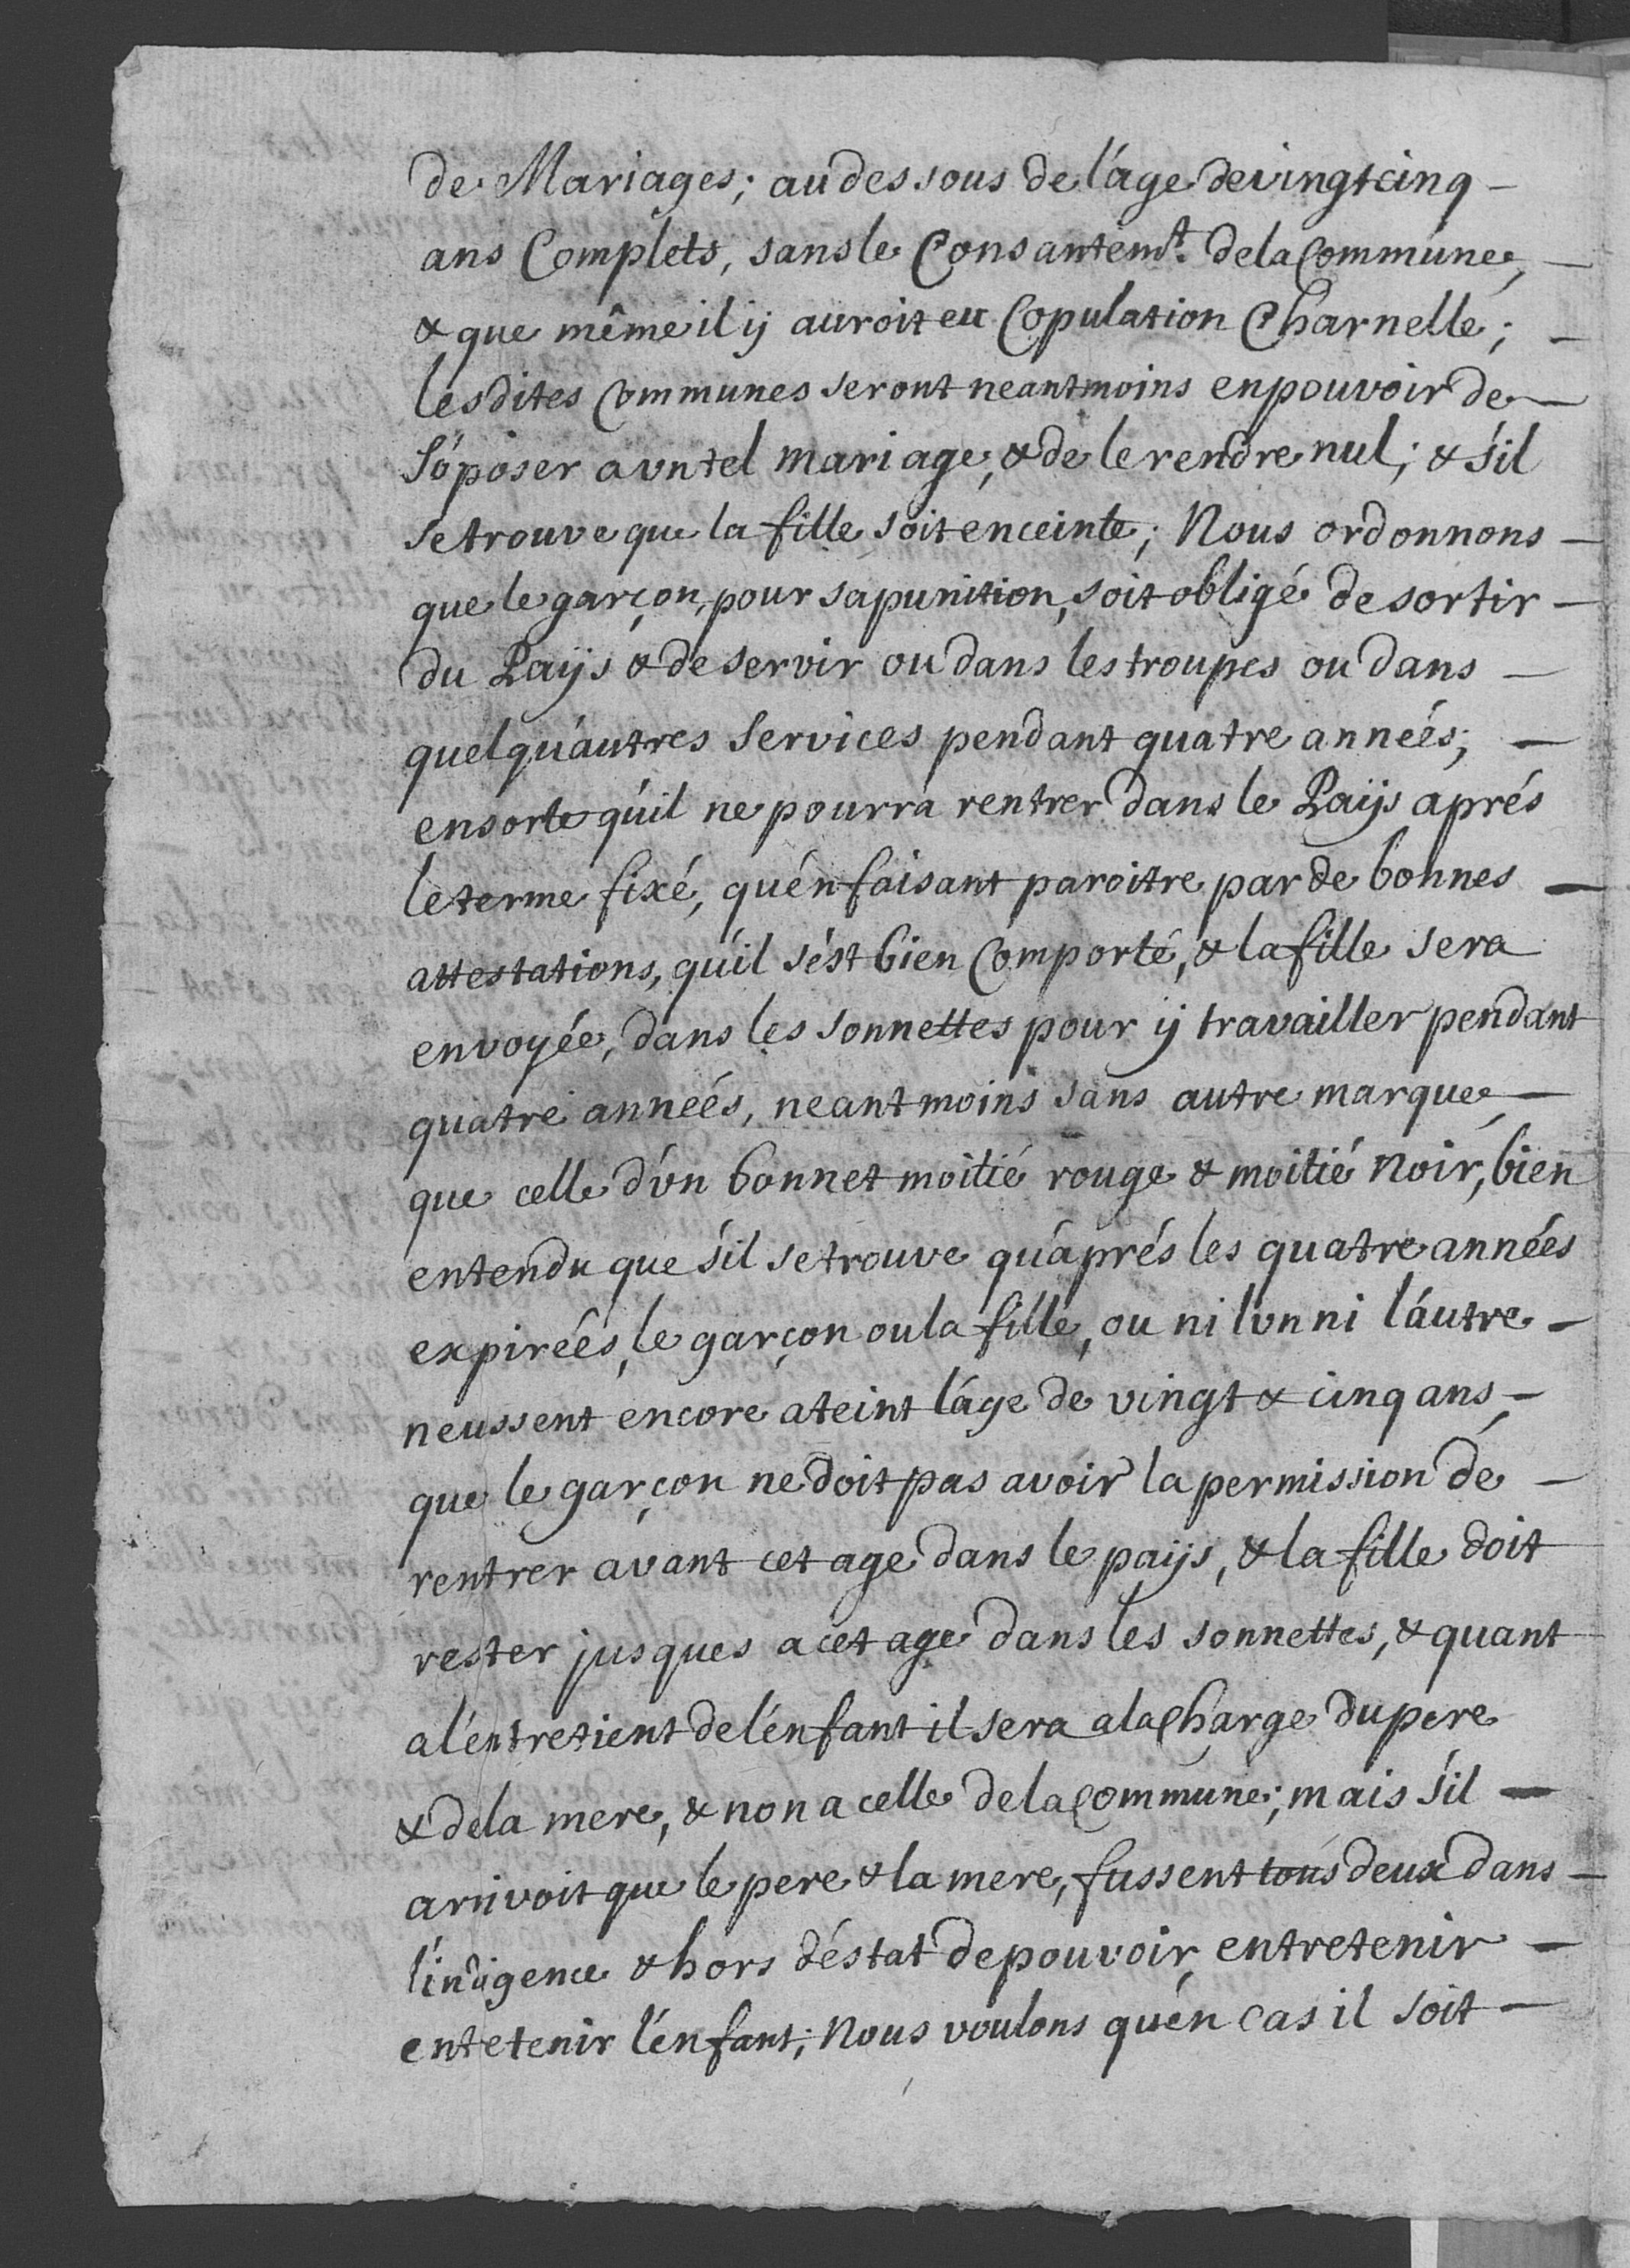 de Mariages; au dessous de l'age de vingt cinq —
ans Complets, sans le Consantemt. de la Commune, —
& que même il ij auroit eu Copulation Charnelle; —
lesdites Communes seront neantmoins en pouvoir de —
s'oposer a vn tel mariage, & de le rendre nul; & s'il
se trouve que la fille soit enceinte; Nous ordonnons —
que le garçon, pour sa punition, soit obligé de sortir —
du Païjs & de servir ou dans les troupes ou dans —
quelqu'autres Services pendant quatre années; —
ensorte qu'il ne pourra rentrer dans le Païjs aprés
le terme fixé, qu'en faisant paroitre par de bonnes —
attestations, qu'il s'est bien Comporté, & la fille sera
envoyée, dans les sonnettes pour ij travailler pendant
quatre années, neantmoins sans autre marque, —
que celle d'vn bonnet moitié rouge & moitié noir, bien
entendu que s'il se trouve qu'aprés les quatre années
expirées, le garçon ou la fille, ou ni lvn ni l'autre —
neussent encore ateint l'age de vingt & cinq ans, —
que le garçon ne doit pas avoir la permission de —
rentrer avant cet age dans le païjs, & la fille doit
rester jusques a cet age dans les sonnettes, & quant
a l'entretient de l'enfant il sera a la Charge du pere
& de la mere, & non a celle de la Commune; mais s'il —
arrivoit que le pere & la mere, fussent tous deux dans —
l'indigence & hors d'estat de pouvoir, entretenir —
entetenir l'enfant; Nous voulons qu'en Cas il soit —